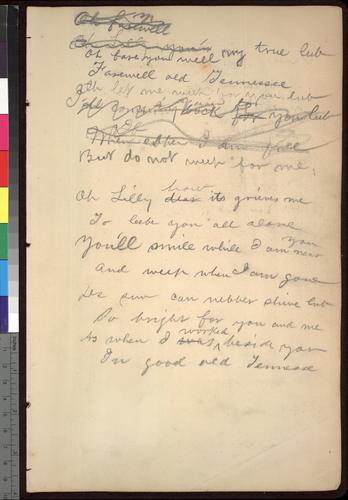 Oh farewell
Oh fare you well my true lub
Farewell old Tennessee
Oh let me weep for you lub
back for you lub
When I am
But do not weep for me,
Oh Lilly how
dear its grieves me
To lebe you all alone
You'll smile while I am near you
And weep when I am gone
De sun can nebber shine lub
So bright for you and me
As when I worked
was beside you
In good old Tennessee